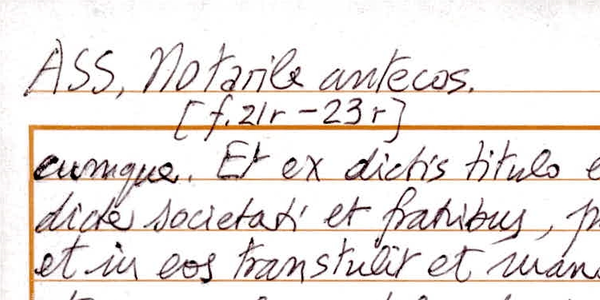 ASS, Notarile antecos.
[f. 21r - 23r]
cumque. Et ex dictis titulo e
dicte societati et fratribus, p
et in eos transtulit et man